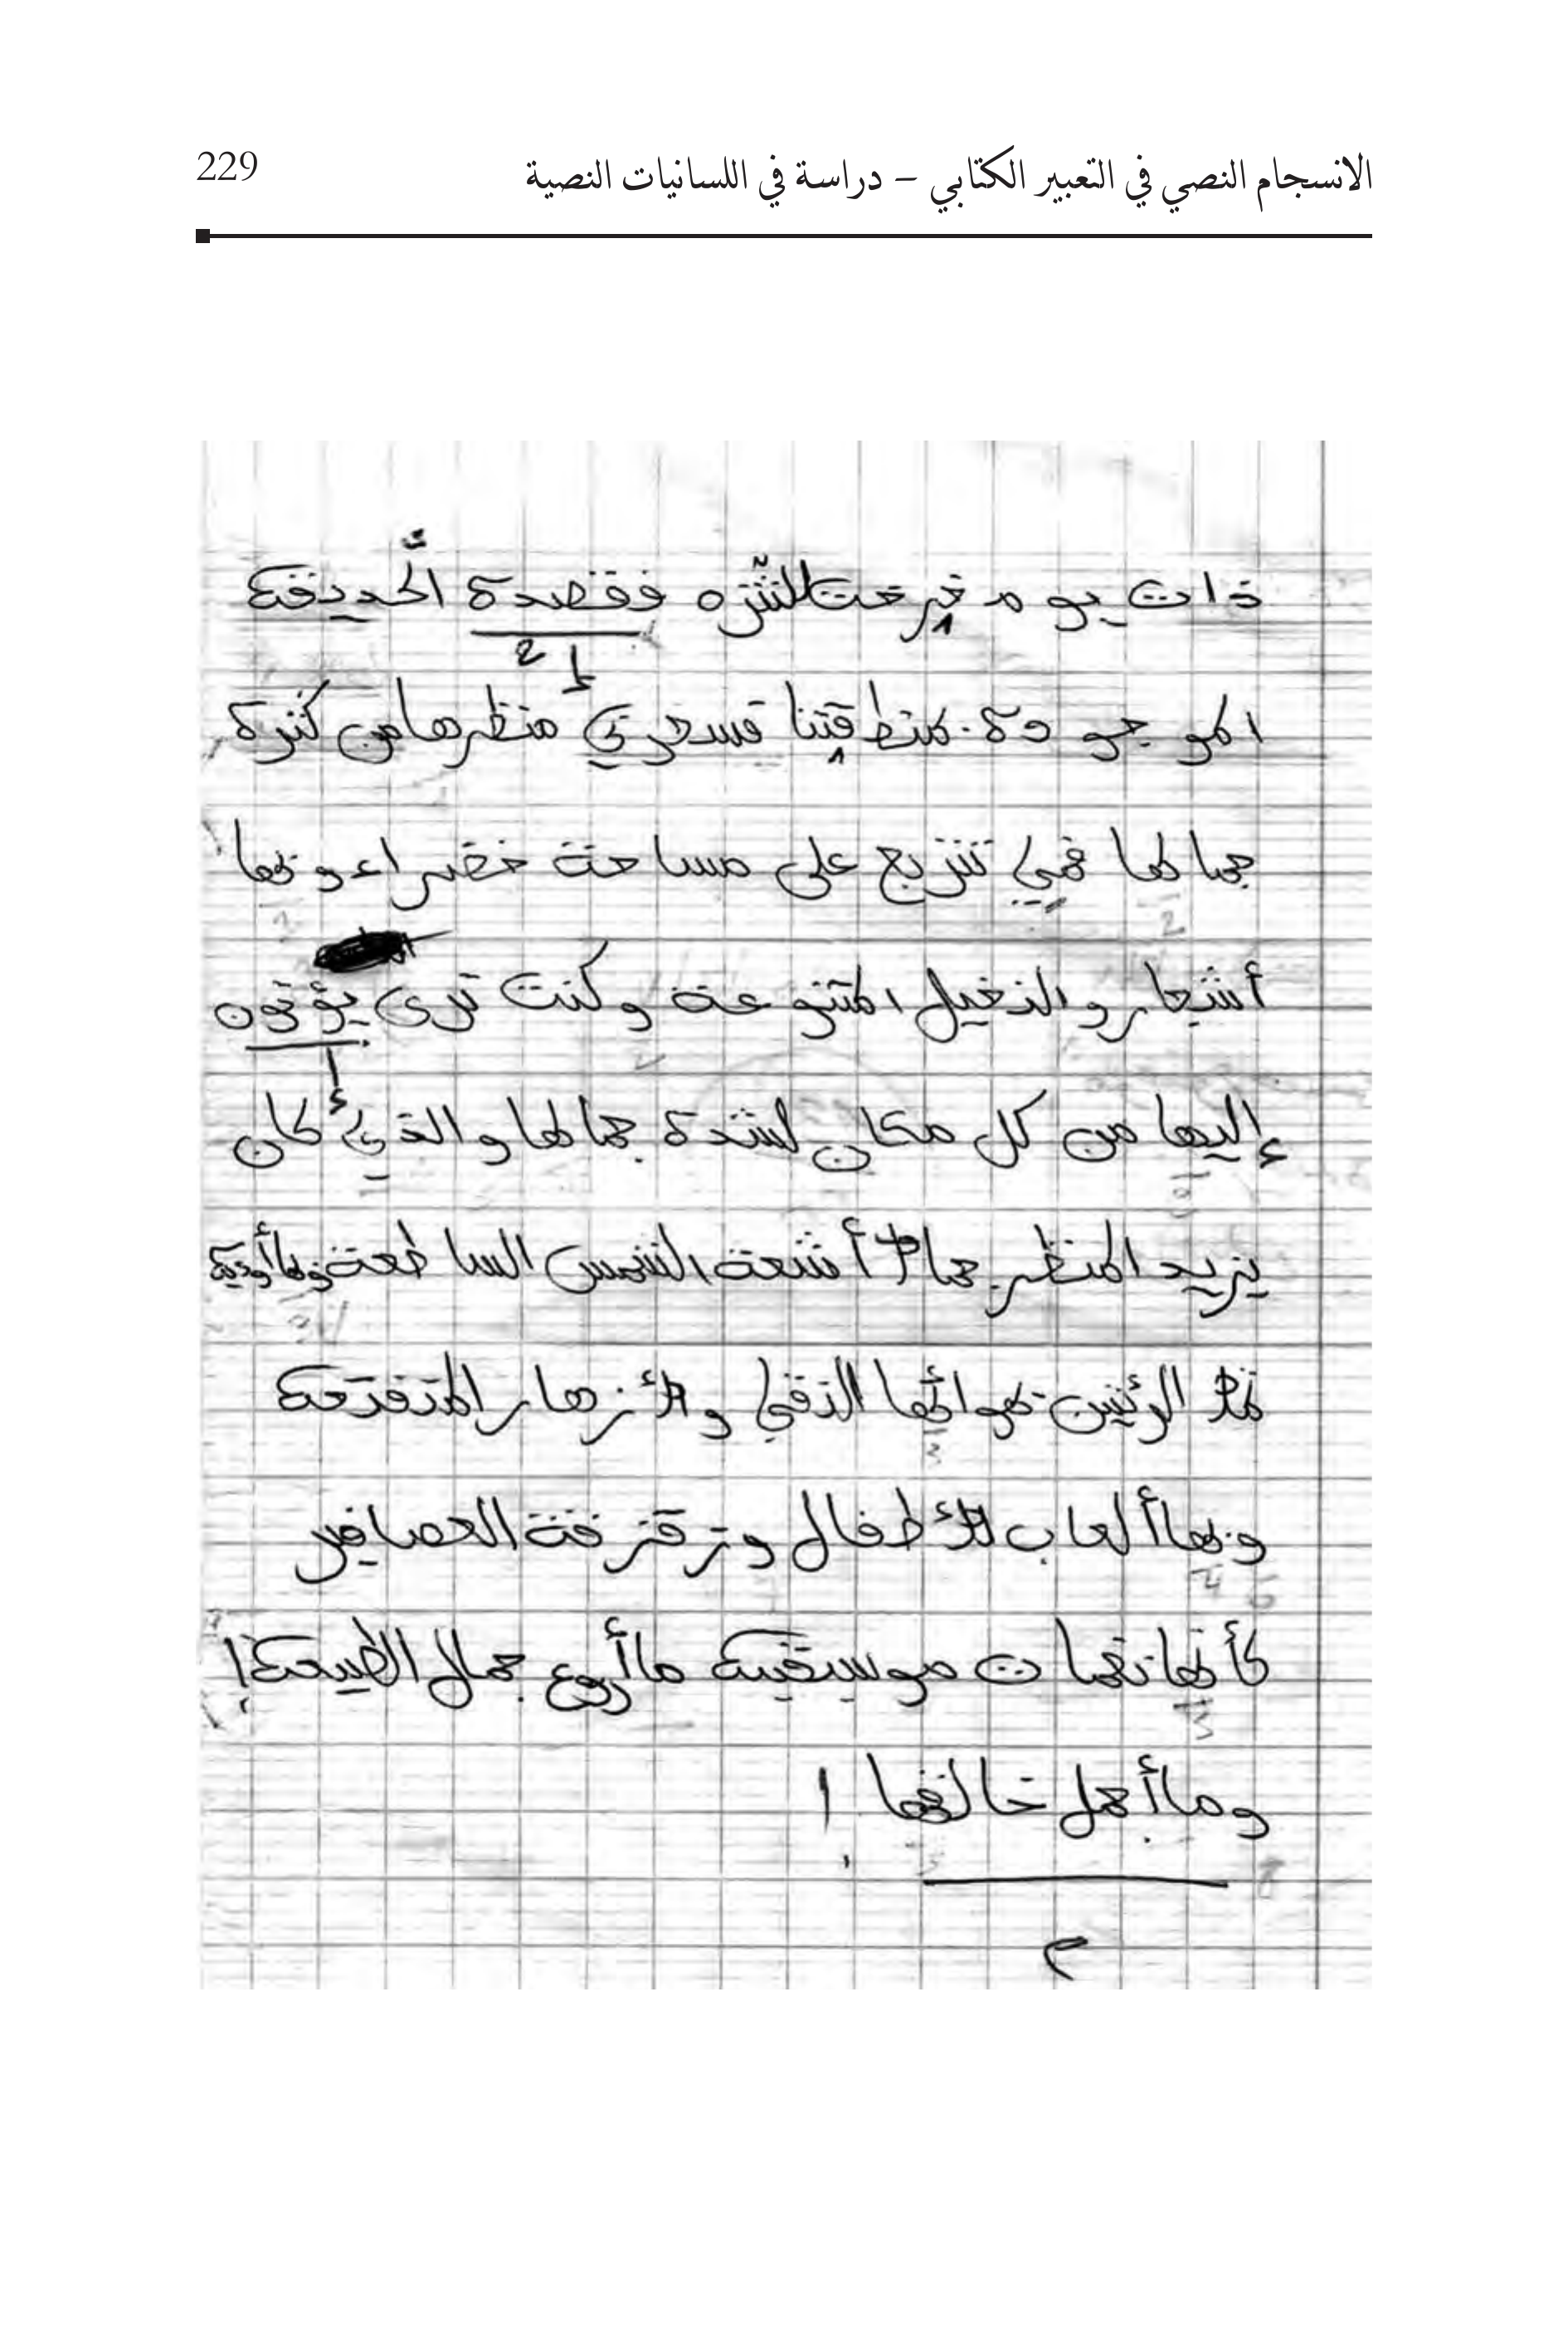 الانسجام النصي في التعبير الكتابي – دراسة في اللسانيات النصية
229
ذات يوم خرجت للتنزه فقصدة الحديقة
الموجودة بمنطقتنا فسحرني منظرها من كثرة
جمالها فهي تتربع على مساحة خضراء وبها
أشجار والنخيل المتنوعة وكنت ترى يؤتون
إليها من كل مكان لشدة جمالها والذي كان
يزيد المنظر جمالا أشعة الشمس الساطعة وبها أودية
تملأ الرئتين بهوائها النقي والأزهار المتفتحة
وبها ألعاب للأطفال وزقزقة العصافير
كأنها نغمات موسيقية ما أروع جمال الطبيعة!
وما أجمل خالقها!